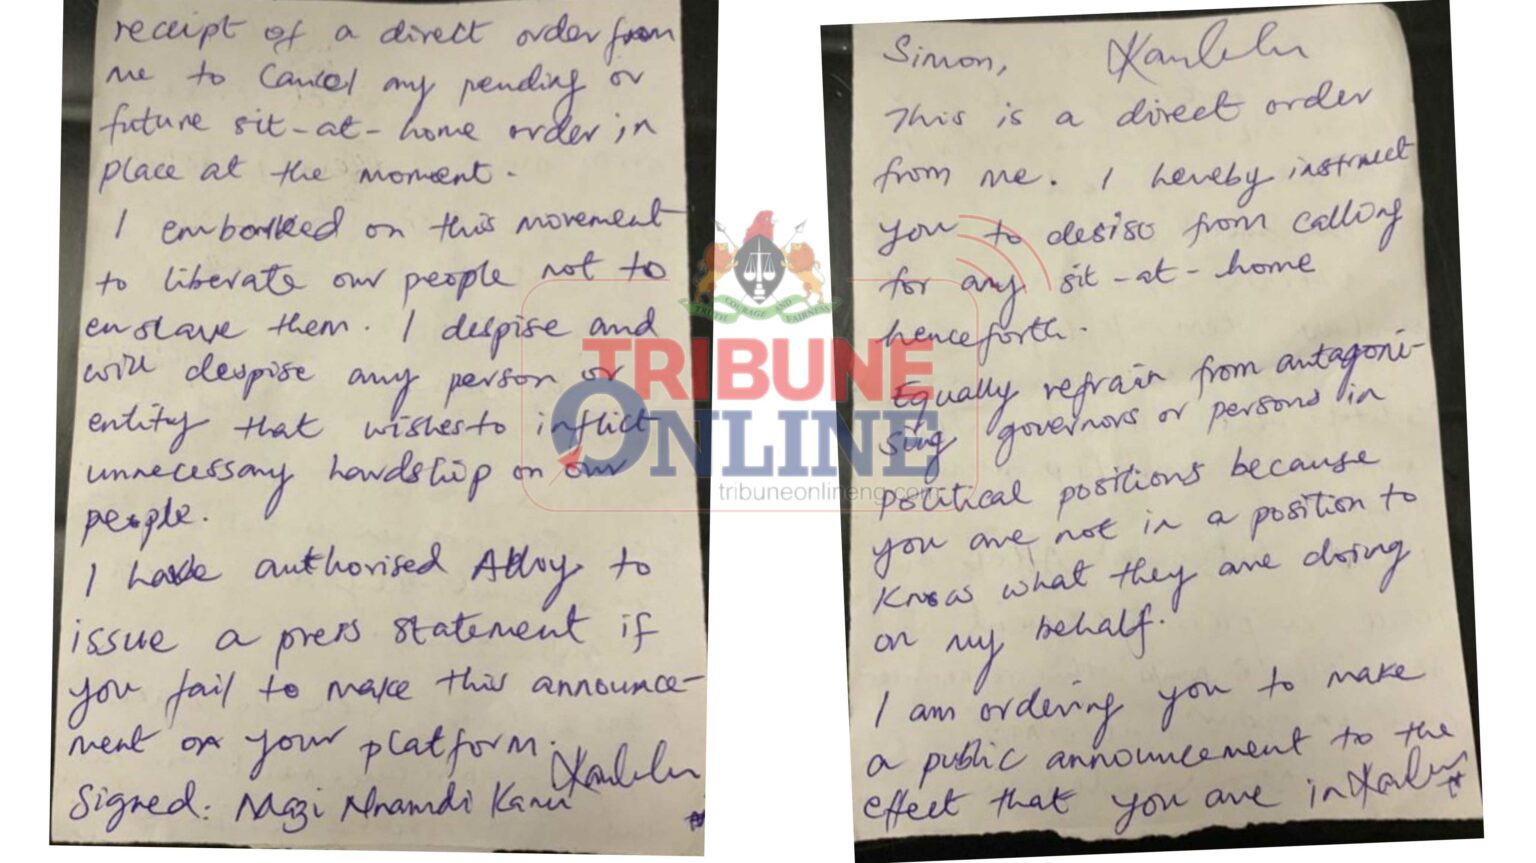 Simon,
This is a direct order
from me. I hereby instruct
you to desist from calling
for any sit-at-home
henceforth.
Equally refrain from antagoni-
sing governors or persons in
political positions because
you are not in a position to
know what they are doing
on my behalf.
I am ordering you to make
a public announcement to the
effect that you are in
receipt of a direct order from
me to cancel any pending or
future sit-at-home order in
place at the moment.
I embarked on this movement
to liberate our people not to
enslave them. I despise and
will despise any person or
entity that wishes to inflict
unnecessary hardship on our
people.
I have authorised Alloy to
issue a press statement if
you fail to make this announce-
ment on your platform.
Signed: Mazi Nnamdi Kanu
TRUTH COURAGE AND FAIRNESS
TRIBUNE
ONLINE
tribuneonlineng.com